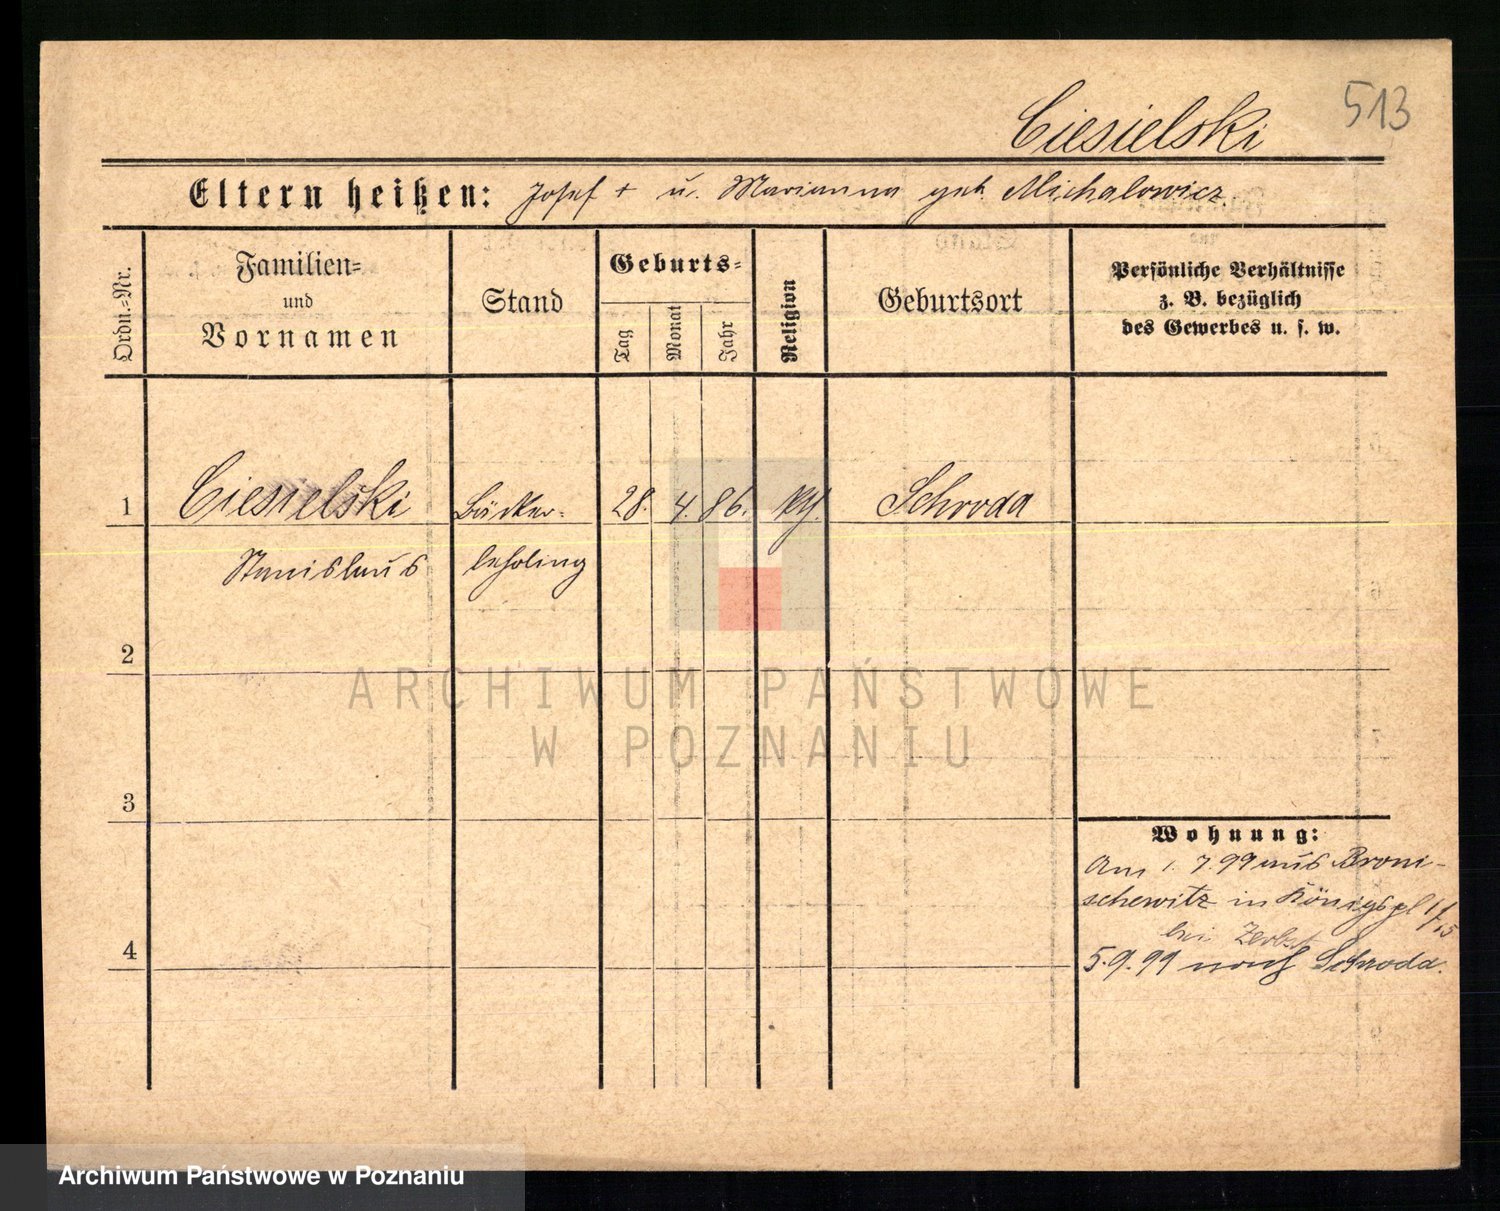 513
Ciesielski
Eltern heißen: Josef + u. Marianna geb. Michalowicz.
Ordn.-Nr.
Familien-
und
Vornamen
Stand
Geburts-
Tag
Monat
Jahr
Religion
Geburtsort
Persönliche Verhältnisse
z. B. bezüglich
des Gewerbes u. s. w.
1 Ciesielski Bäcker- 28. 4. 86. kth. Schroda
Stanislaus lehrling
2
ARCHIWUM PAŃSTWOWE
W POZNANIU
3
Wohnung:
Am 1. 7. 99 aus Broni-
schewitz in Königspl
bei Zerbst
4
5. 9. 99 nach Schroda.
Archiwum Państwowe w Poznaniu